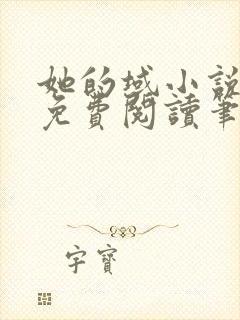 她的域小說
免費閱讀筆
字寶